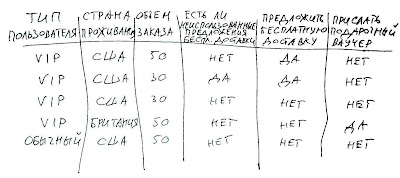 ТИП ПОЛЬЗОВАТЕЛЯ | СТРАНА ПРОЖИВАНИЯ | ОБЪЕМ ЗАКАЗА | ЕСТЬ ЛИ НЕИСПОЛЬЗОВАННЫЕ ПРЕДЛОЖЕНИЯ БЕСПЛ. ДОСТАВКИ | ПРЕДЛОЖИТЬ БЕСПЛАТНУЮ ДОСТАВКУ | ПРИСЛАТЬ ПОДАРОЧНЫЙ ВАУЧЕР
VIP | США | 50 | НЕТ | ДА | НЕТ
VIP | США | 30 | ДА | ДА | НЕТ
VIP | США | 30 | НЕТ | НЕТ | НЕТ
VIP | БРИТАНИЯ | 50 | НЕТ | НЕТ | ДА
ОБЫЧНЫЙ | США | 50 | НЕТ | НЕТ | НЕТ